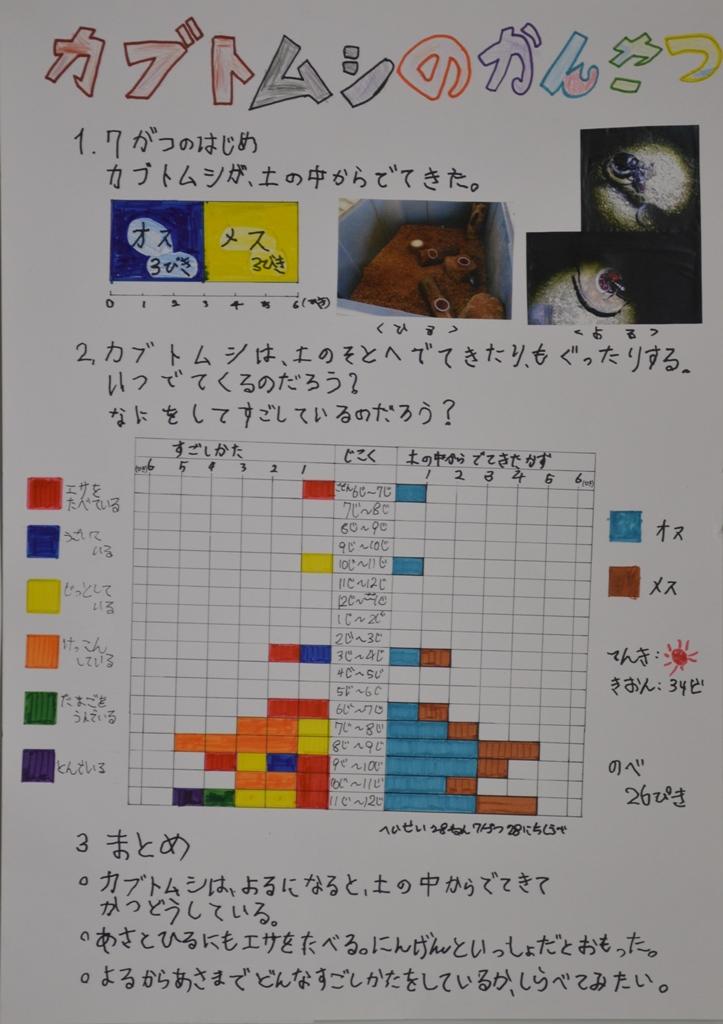 カブトムシのかんさつ
1. 7がつのはじめ
カブトムシが、土の中からでてきた。
オス 3びき
メス 3びき
0 1 2 3 4 5 6(ひき)
<ひる>
<よる>
2. カブトムシは、土のそとへでてきたり、もぐったりする。
いつでてくるのだろう?
なにをしてすごしているのだろう?
すごしかた じこく 土の中からでてきたかず
(ひき)6 5 4 3 2 1
1 2 3 4 5 6(ひき)
ごぜん6じ〜7じ
7じ〜8じ
8じ〜9じ
9じ〜10じ
10じ〜11じ
11じ〜12じ
12じ〜1じ
1じ〜2じ
2じ〜3じ
3じ〜4じ
4じ〜5じ
5じ〜6じ
6じ〜7じ
7じ〜8じ
8じ〜9じ
9じ〜10じ
10じ〜11じ
11じ〜12じ
エサを
たべている
うごいて
いる
じっとして
いる
けっこん
している
たまごを
うんでいる
とんでいる
オス
メス
てんき:
きおん: 34ど
のべ
26ぴき
へいせい28ねん7がつ28にちしらべ
3 まとめ
○ カブトムシは、よるになると、土の中からでてきて
かつどうしている。
○ あさとひるにもエサをたべる。にんげんといっしょだとおもった。
○ よるからあさまでどんなすごしかたをしているか、しらべてみたい。